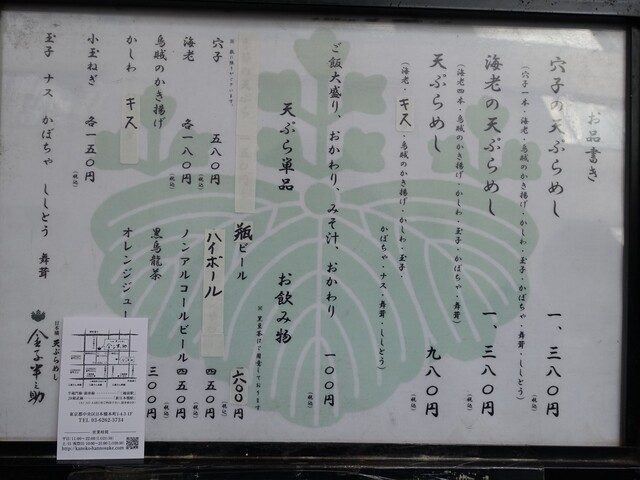 お品書き
穴子の天ぷらめし 一、三八〇円(税込)
(穴子一本・海老・烏賊のかき揚げ・かしわ・玉子・かぼちゃ・舞茸・ししとう)
海老の天ぷらめし 一、三八〇円(税込)
(海老四本・烏賊のかき揚げ・かしわ・玉子・かぼちゃ・舞茸・ししとう)
天ぷらめし 九八〇円(税込)
(海老・キス・烏賊のかき揚げ・かしわ・玉子・
かぼちゃ・ナス・舞茸・ししとう)
ご飯大盛り、おかわり、みそ汁、おかわり 一〇〇円(税込)
天ぷら単品
穴子 五八〇円(税込)
海老
烏賊のかき揚げ 各一八〇円(税込)
かしわ キス
小玉ねぎ 各一五〇円(税込)
玉子 ナス かぼちゃ ししとう 舞茸
お飲み物
※黒豆茶はご用意しております
瓶ビール 六〇〇円(税込)
ハイボール 四五〇円(税込)
ノンアルコールビール 四五〇円
黒烏龍茶 三〇〇円
オレンジジュー
日本橋 天ぷらめし
金子半之助
東京都中央区日本橋本町1-4-3 1F
TEL 03-6262-3734
営業時間
http://kaneko-hannosuke.com/